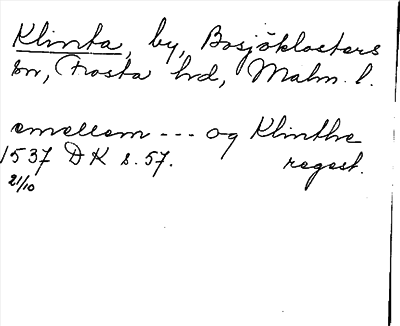 Klinta, by, Bosjöklosters
sn, Frosta hrd, Malm. l.
emellem --- og Klinthe
1537 DK s. 57. regest.
21/10